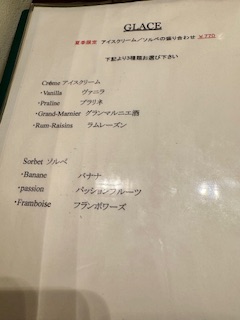 GLACE
夏季限定 アイスクリーム／ソルベの盛り合わせ ¥770
下記より3種類お選び下さい
Crème アイスクリーム
・Vanilla ヴァニラ
・Praline プラリネ
・Grand-Marnier グランマルニエ酒
・Rum-Raisins ラムレーズン
Sorbet ソルベ
・Banane バナナ
・passion パッションフルーツ
・Framboise フランボワーズ